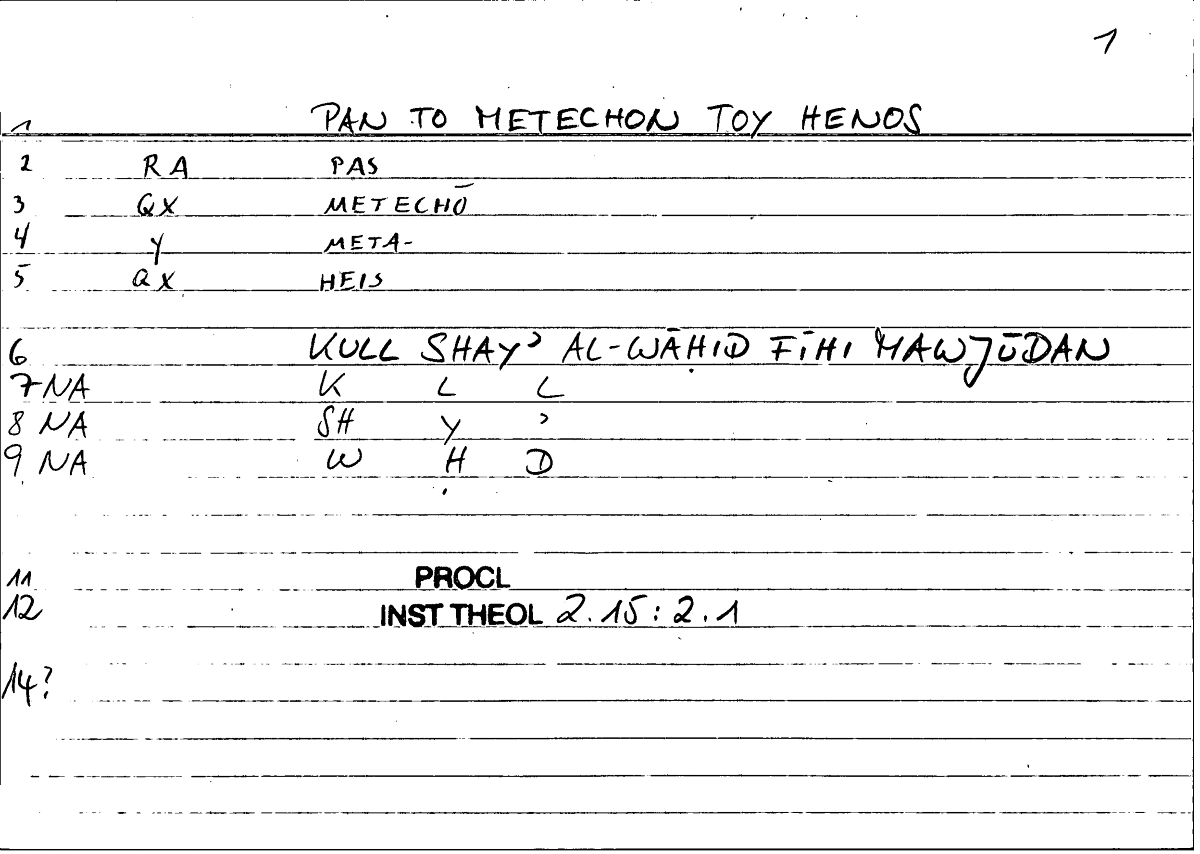 1
1 PAN TO METECHON TOY HENOS
2 RA PAS
3 QX METECHŌ
4 Y META-
5 QX HEIS
6 KULL SHAYʾ AL-WĀḤID FĪHI MAWJŪDAN
7 NA K L L
8 NA SH Y ʾ
9 NA W Ḥ D
11 PROCL
12 INST THEOL 2.15:2.1
14?